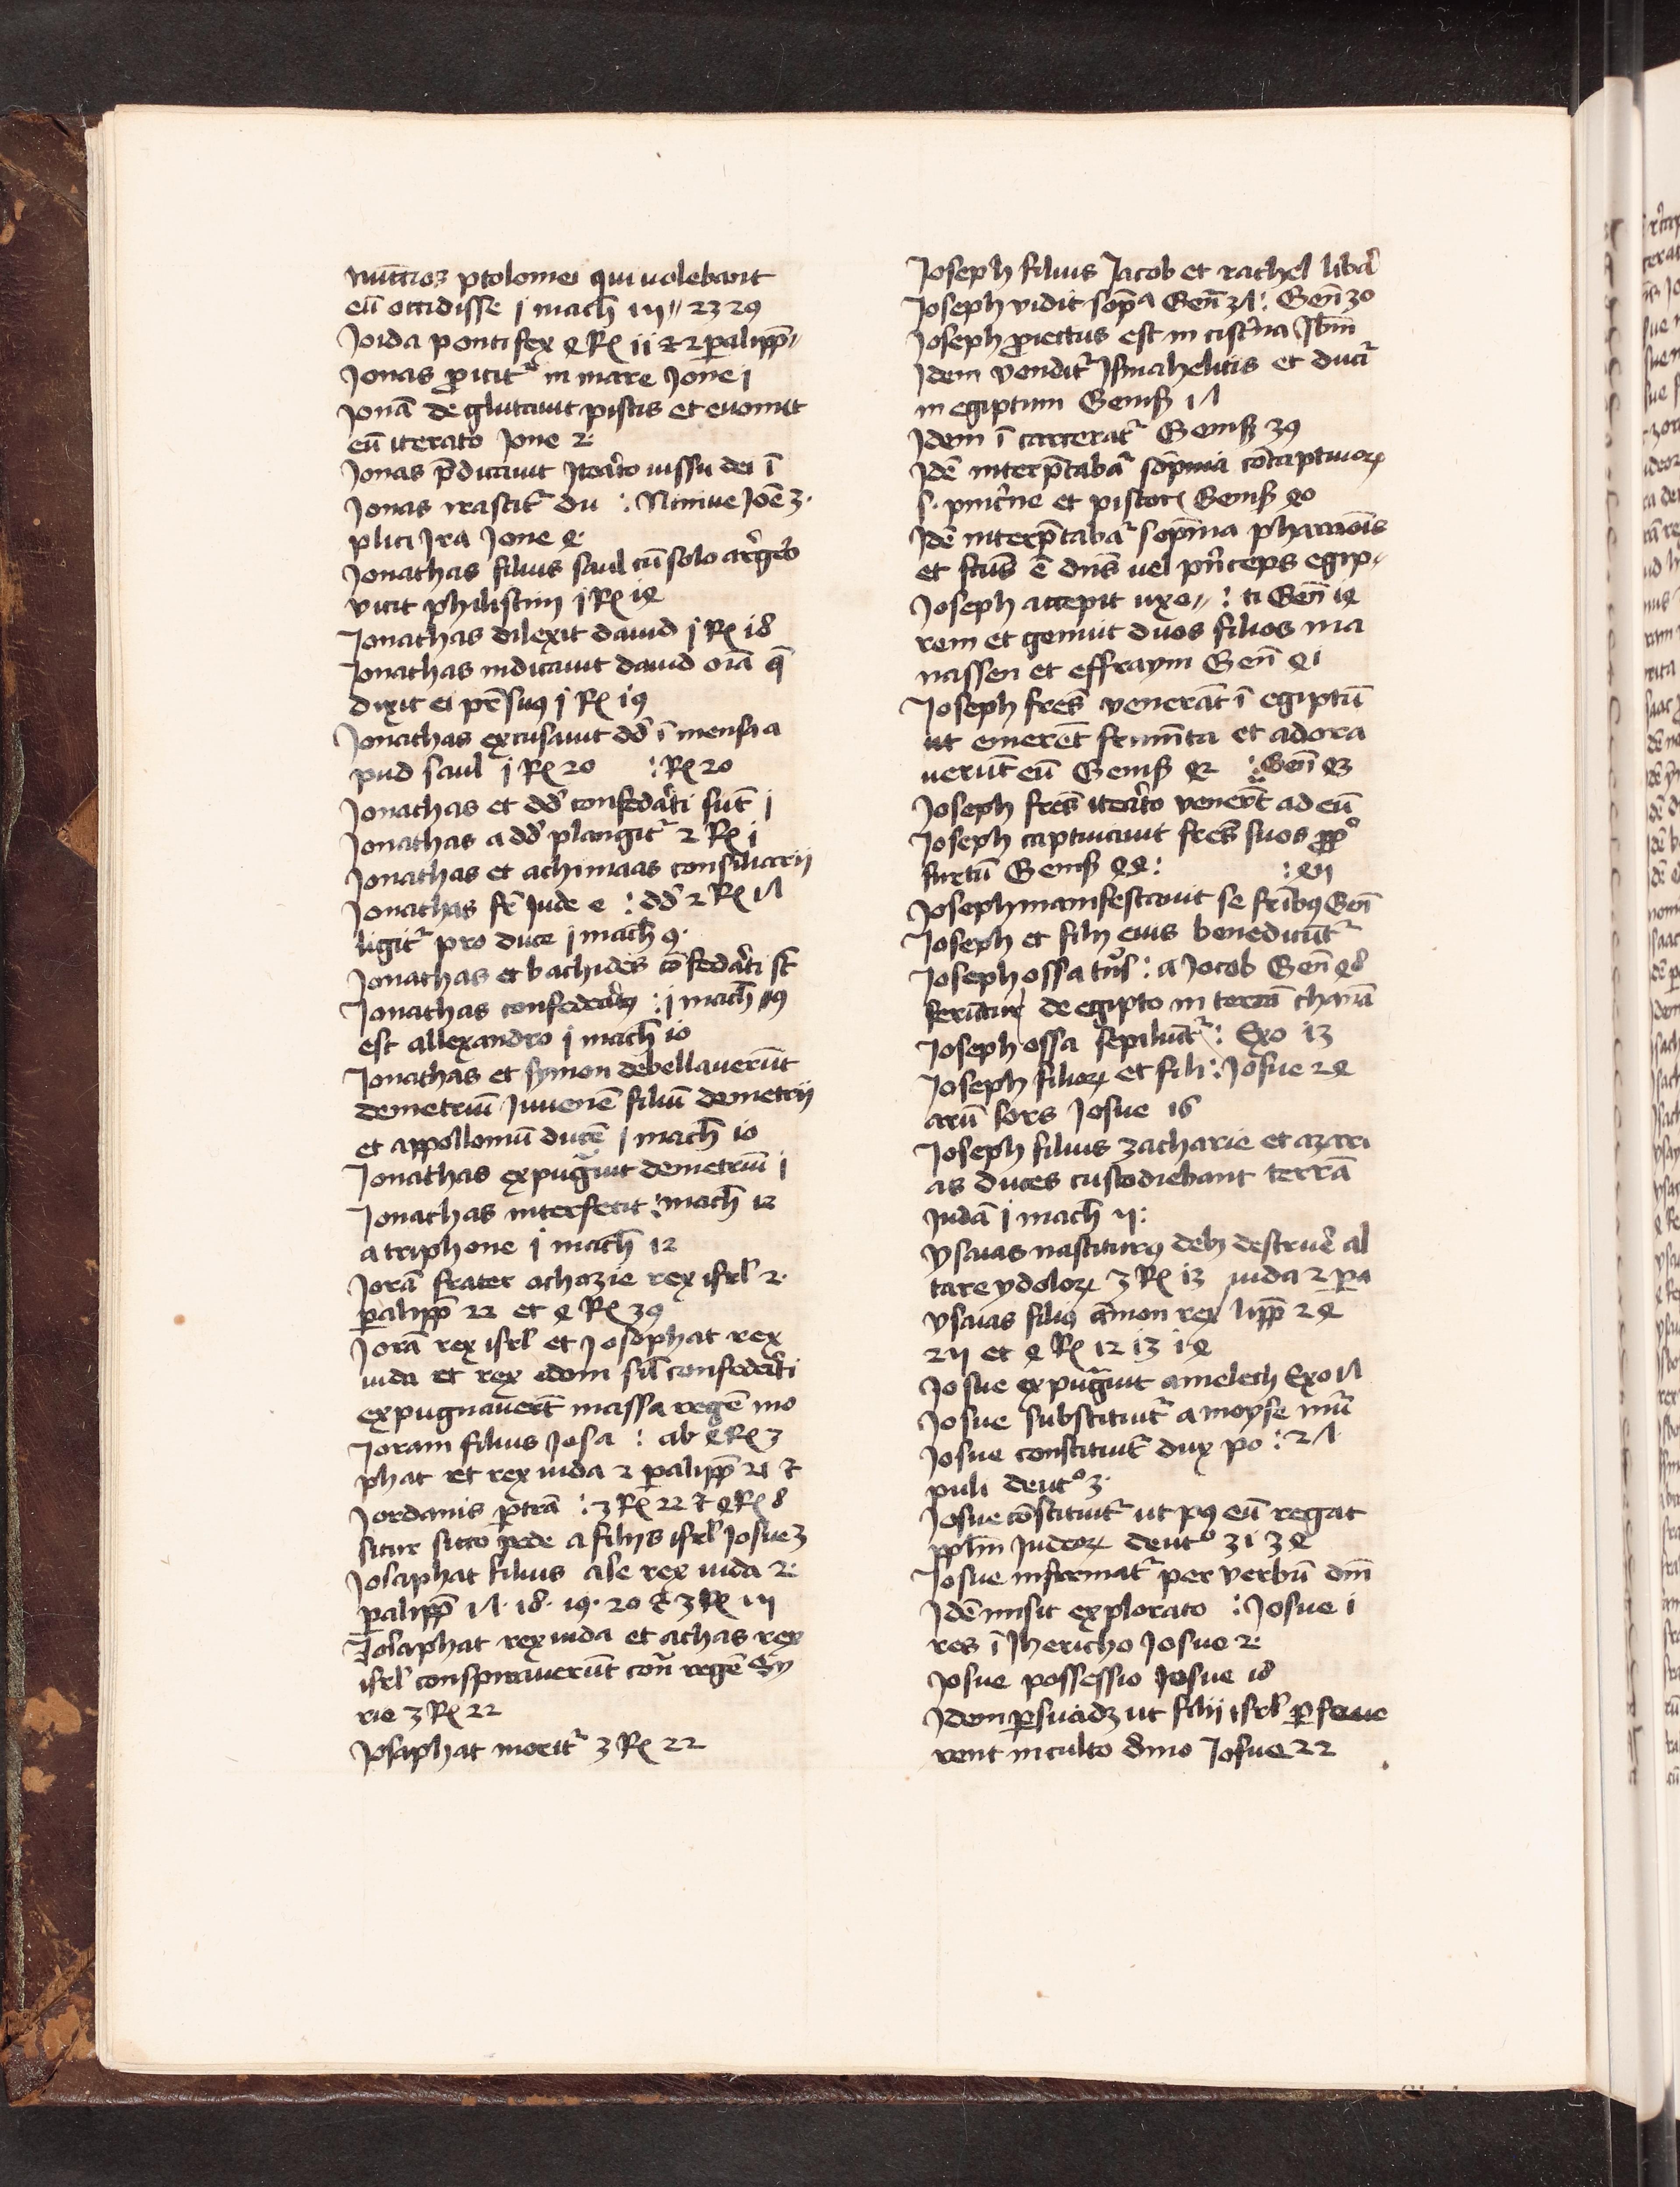 nūttios ptolomei qui uolebant
eū occidisse j mach̄ 111〃 23 29
Joida pontifex 4 Rꝭ 11 et 2 ꝑalipp̄〃
Jonas ꝓicitᷣ in mare Jone j
Jonā de glutiuit piscis et euomit
eū iterato Jone 2·
Jonas p̄dicauit Iteāto iussu dei ī
Jonas irascitᷣ du : Niniue Joē 3·
plici Ira Jone 4·
Jonathas filius saul cū solo ar̄geō
vicit philistiim j Rꝭ 14
Jonathas dilexit dauid j Rꝭ 18
Jonathas indicauit dauid oīa q̄
dixit ei pr̄ suꝰ j Rꝭ 19
Jonathas excusauit dd̄ ī mensa a
pud saul j Rꝭ 20 : Rꝭ 20
Jonathas et dd̄ confedāti sūt j
Jonathas a dd̄ plangitᷣ 2 Rꝭ j
Jonathas et achimaas consiliarii
Jonathas fr̄ Jude e : dd̄ 2 Rꝭ 17
ligitᷣ pro duce j mach̄ 9·
Jonathas et bachides cō fedāti st̄
Jonathas confedeātꝰ : j mach̄ 9
est allexandro j mach̄ 10
Jonathas et symon debellauerūt
demetriū Juuenē filiū demetrij
et appolloniū ducē j mach̄ 10
Jonathas expugāuit demetriū j
Jonathas interfecit : mach̄ 12
a triphone j mach̄ 12
Jorā frater achazie rex isrl̄ 2·
ꝑalipp̄ 22 et 4 Rꝭ 39
Jorā rex isrl̄ et Josophat rex
iuda et rex edom sīl confedeāti
expugnauert̄ massa regē mo
Joram filius Josa : ab 4 Rꝭ 3
phat et rex iuda 2 ꝑalipp̄ 21 et
Jordanis ꝑtrā : 3 Rꝭ 22 et 4 Rꝭ 8
situr sicco pede a filijs isrl̄ Josue 3
Josaphat filius ase rex iuda 2·
ꝑalipp̄ 17· 18· 19· 20 et 3 Rꝭ 111
Josaphat rex iuda et achas rex
isrl̄ conspirauerūt cōn̄ regē Sy
rie 3 Rꝭ 22
Josaphat moritᷣ 3 Rꝭ 22
Joseph filius Jacob et rachel
Joseph vidit sop̄a Gen̄ 37 : Gen̄ 30
Joseph ꝓiectus est in cist̄na Ibm̄
Idem venditᷣ Ismahelitis et ducᷣ
in egiptum Genẜ 17
Idem ī carceratᷣ Genẜ 39
Idē interp̄tabaᷣ sōpnia cōcaptiuoꝝ
s· pinc̄ne et pistorꝭ Genẜ 40
Idē interp̄tabaᷣ sopnia pharaōis
et fcūs ē dn̄s uel pn̄ceps egip〃
Joseph accepit uxo〃 : ti Gen̄ 14
rem et genuit duos filios ma
nassen et effraym Gen̄ 41
Joseph fres̄ venerāt ī egiptū
ut emerēt frumn̄ta et adora
uerūt eū Genẜ 42 : Gen̄ 43
Joseph fres̄ iteāto venerēt ad eū
Joseph captiuauit fres̄ suos ꝓp̄º
furtū Genẜ 44 : : 411
Joseph manifestauit se frībꝰ Gen̄
Joseph et filij eius benedicūtᷣ
Joseph ossa tn̄s : a Jacob Gen̄ 48
ferūtur de egipto in terrā chanā
Joseph ossa sepiliūtᷣ : Exo 13
Joseph filioꝝ et fili : Josue 24
arū sors Josue 16
Joseph filius zacharie et azari
as duces custodiebant terrā
Judā j mach̄ 11 :
ysaias nasciturꝰ debꝫ destruē al
tare ydoloꝝ 3 Rꝭ 13 iuda 2 ꝑa
ysaias filiꝰ āmon rex lipp̄ 24
211 et 4 Rꝭ 12 13 14
Josue expugāuit amelech Exo 17
Josue substituitᷣ a moyse nūᷣ
Josue constituitᷣ dux po : 27
puli deutº 3·
Josue cōstituitᷣ ut pꝰ eū regat
ppl̄m Judeoꝝ deutº 31 34
Josue informatᷣ per verbū dn̄i
Idē misit explorato : Josue i
res ī Jhericho Josue 2·
Josue possessio Josue 18
Idem ꝑsuadꝫ ut filij isrl̄ ꝑseue
rent in culto dn̄o Josue 22